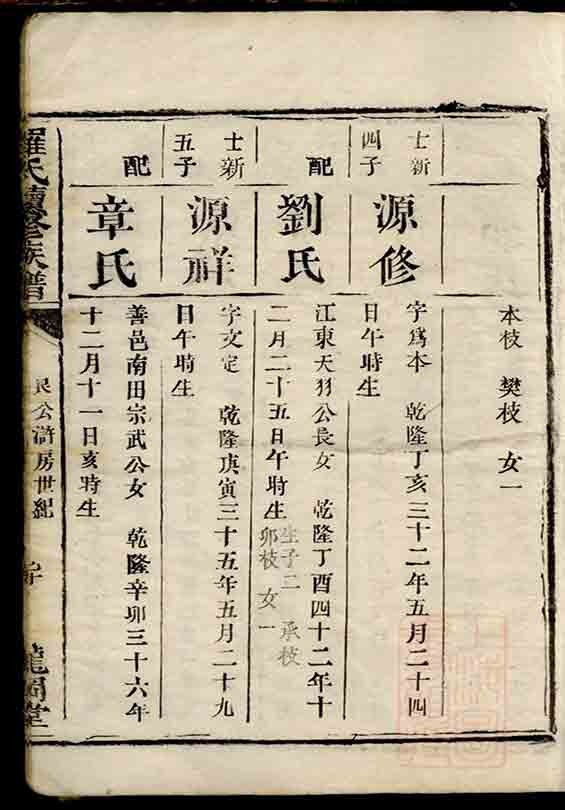 本枝　樊枝　女一
士新
四子
源修
字爲本　乾隆丁亥三十二年五月二十四
日午時生
配
劉氏
江東天羽公長女　乾隆丁酉四十二年十
二月二十五日午時生
生子二　承枝
卯枝　女一
士新
五子
源祥
字文定　乾隆庚寅三十五年五月二十九
日午時生
配
章氏
善邑南田宗武公女　乾隆辛卯三十六年
十二月十一日亥時生
羅氏續修族譜
良公滸房世紀